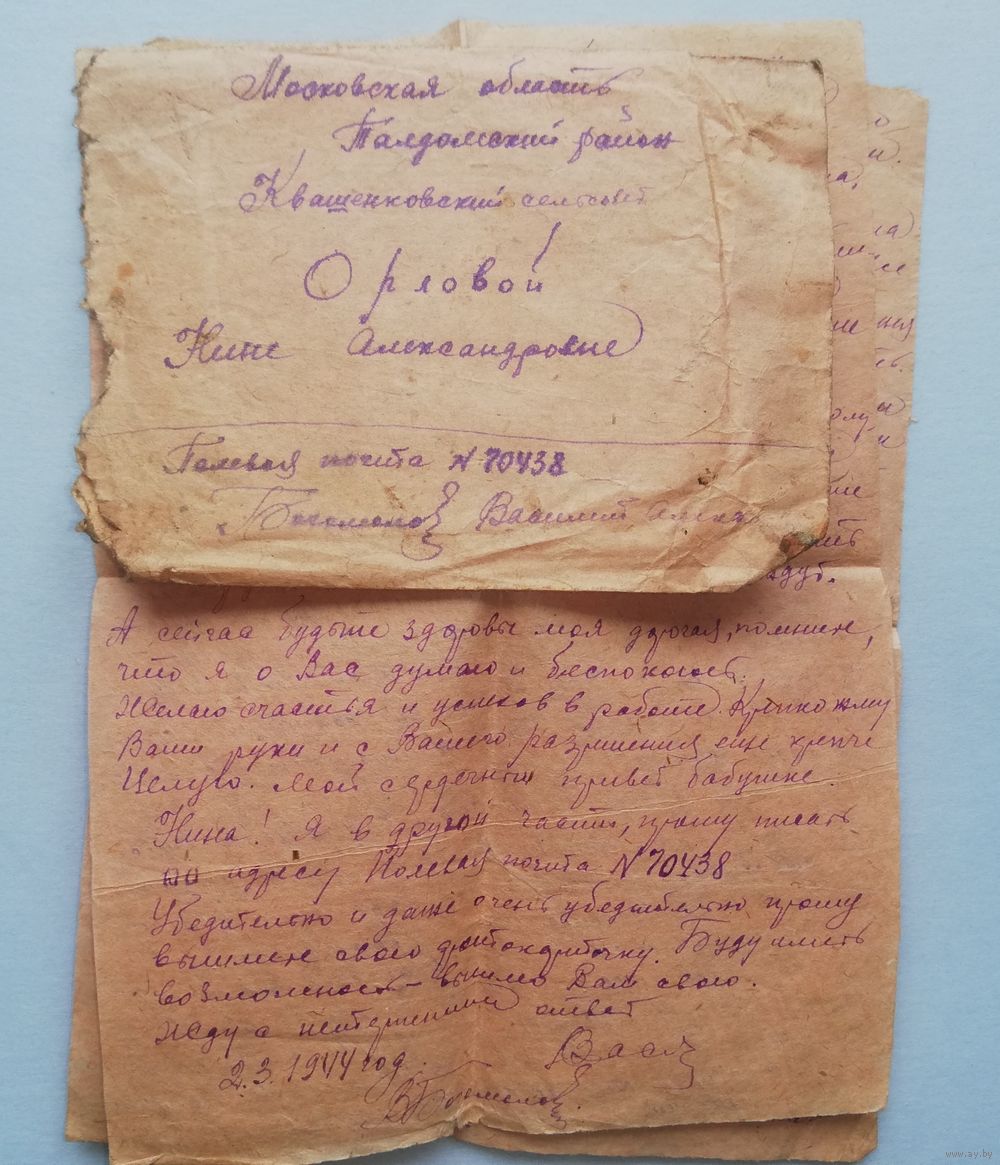 Московская область
Талдомский район
Квашенковский сельсовет
Орловой
Нине Александровне
Полевая почта N 70438
Богомолов Василий
ждут.
А сейчас будьте здоровы моя дорогая, помните,
что я о Вас думаю и беспокоюсь.
Желаю счастья и успехов в работе. Крепко жму
Ваши руки и с Вашего разрешения еще крепче
целую. Мой сердечный привет бабушке.
Нина! Я в другой части, прошу писать
по адресу Полевая почта N 70438
Убедительно и даже очень убедительно прошу
вышлите свою фотокарточку. Буду иметь
возможность – вышлю Вам свою.
Жду с нетерпением ответ
2.3.1944 год. Вася
ВБогомолов.
www.ay.by